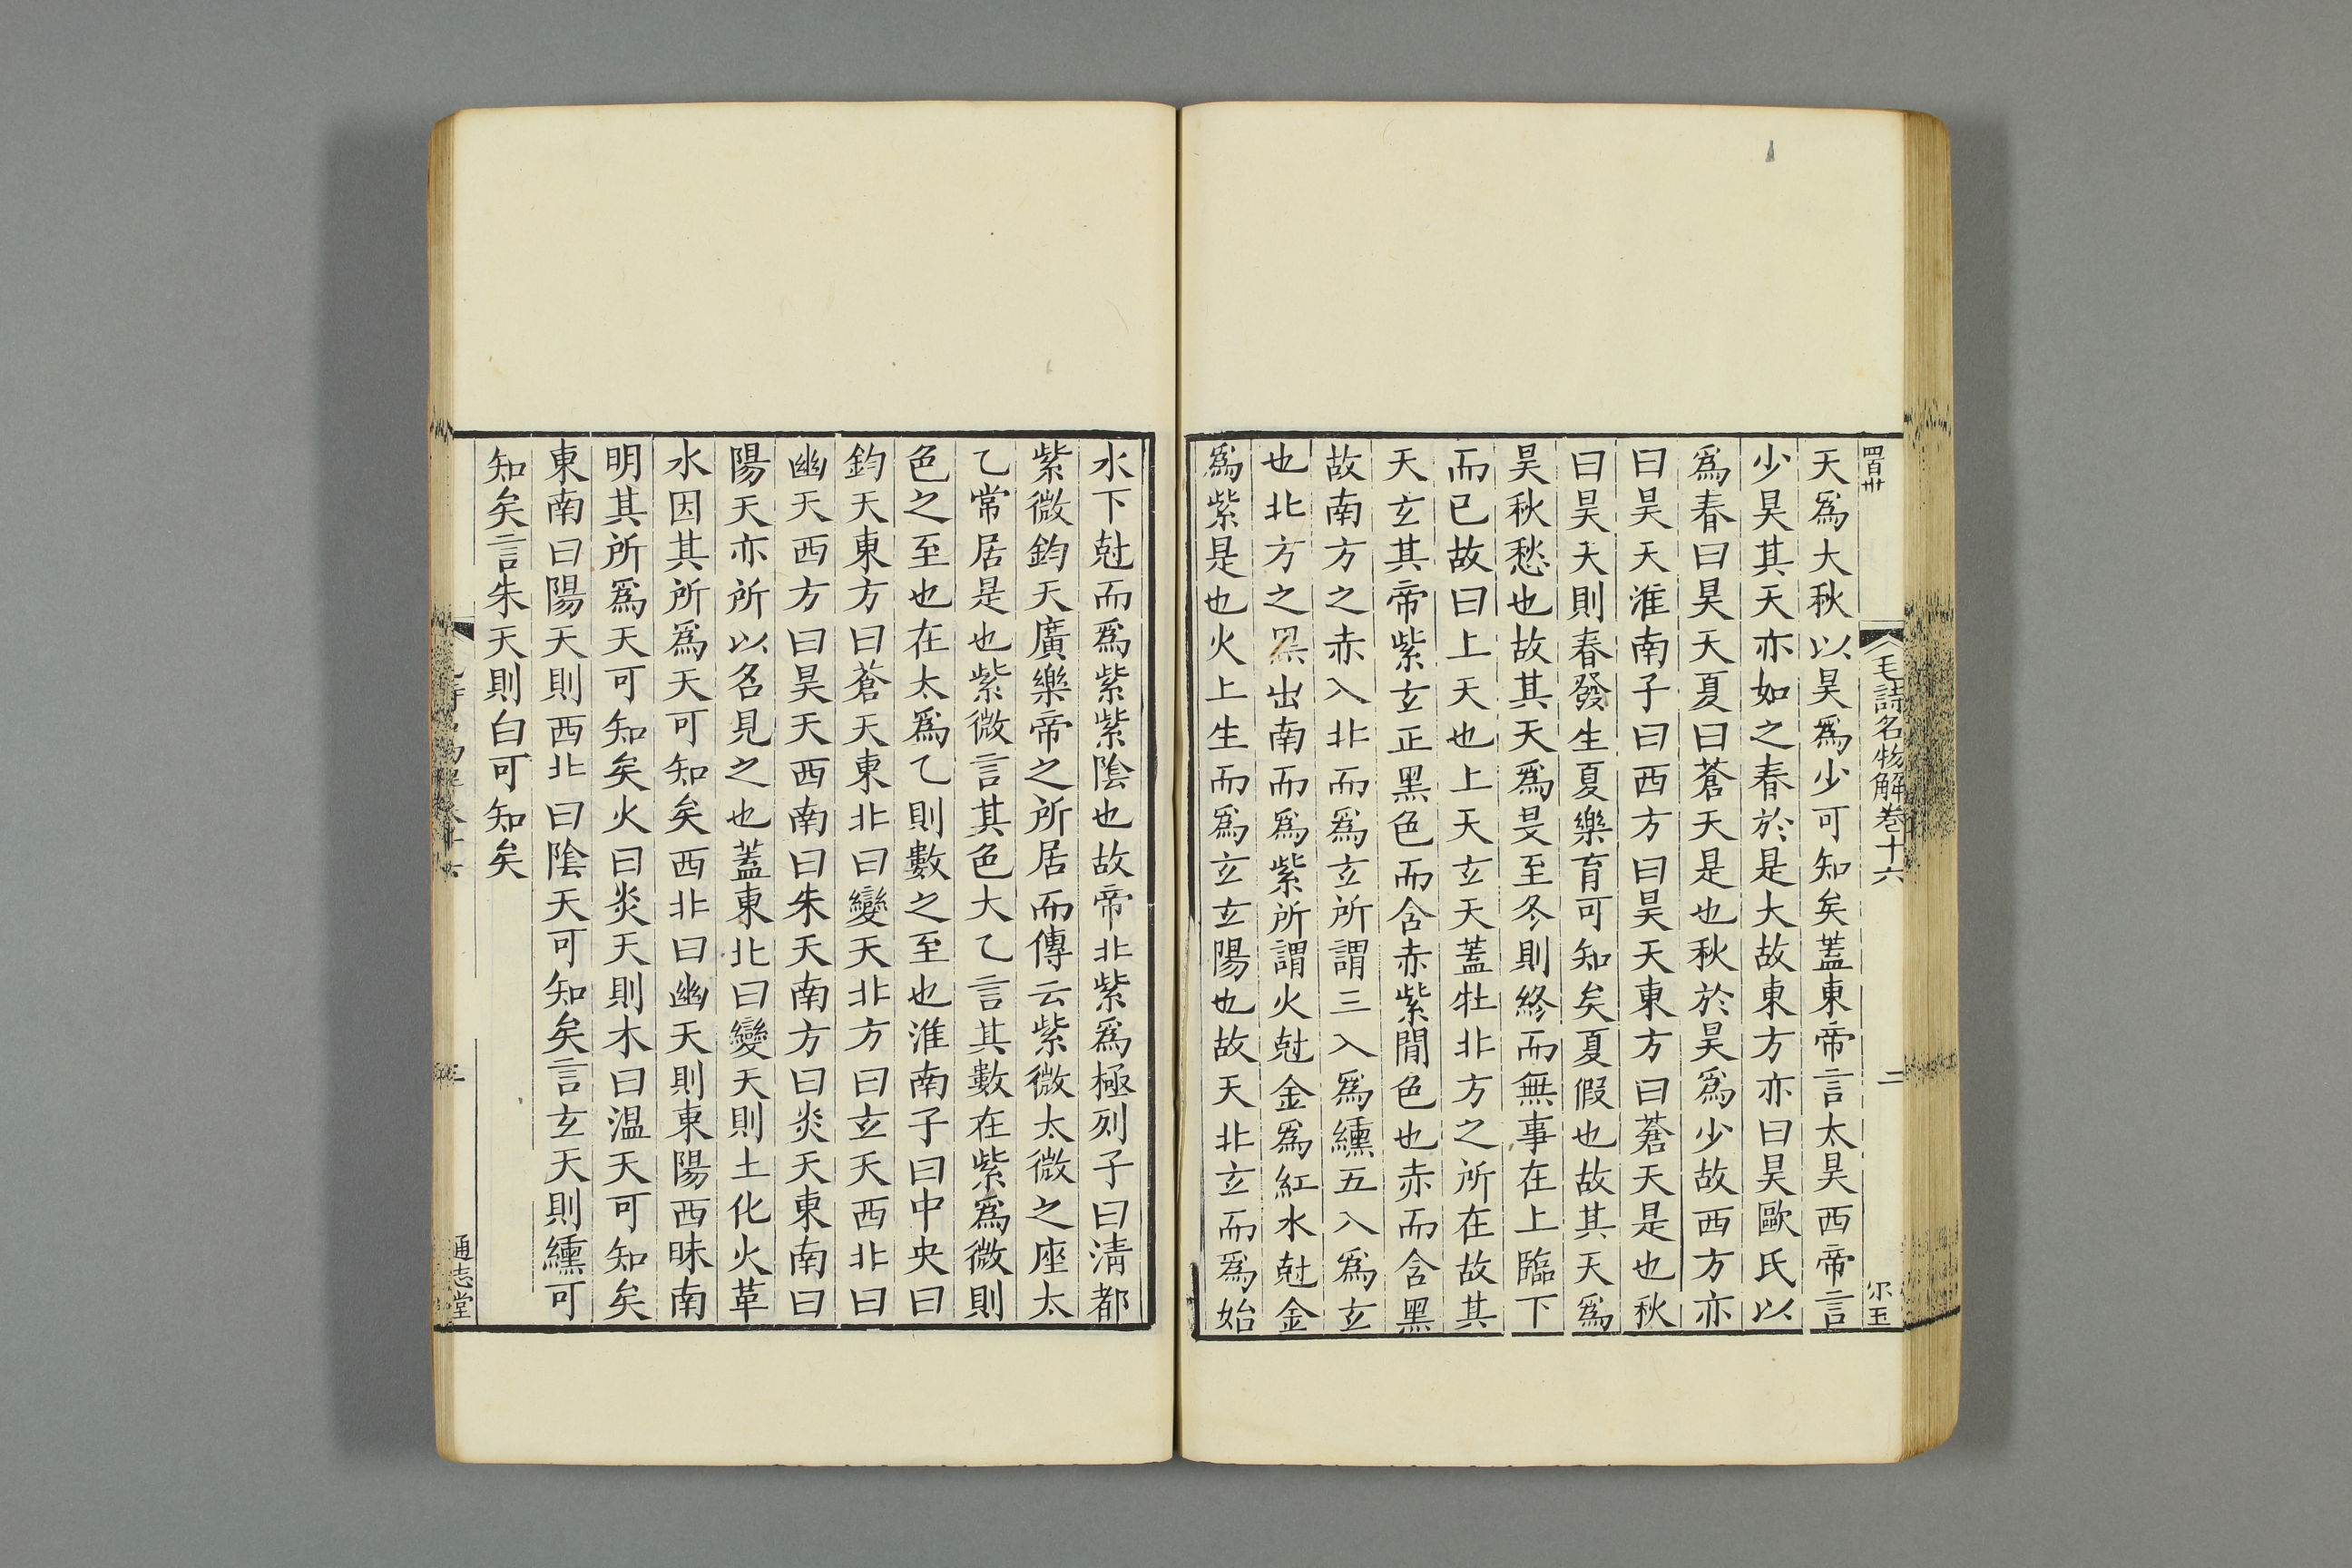 四百卅
毛詩名物解卷十六
二
尔玉
天爲大秋以昊爲少可知矣蓋東帝言太昊西帝言
少昊其天亦如之春於是大故東方亦曰昊歐氏以
爲春曰昊天夏曰蒼天是也秋於昊爲少故西方亦
曰昊天淮南子曰西方曰昊天東方曰蒼天是也秋
曰昊天則春發生夏樂育可知矣夏假也故其天爲
昊秋愁也故其天爲旻至冬則終而無事在上臨下
而已故曰上天也上天玄天蓋牡北方之所在故其
天玄其帝紫玄正黑色而含赤紫閒色也赤而含黑
故南方之赤入北而爲玄所謂三入爲纁五入爲玄
也北方之黑出南而爲紫所謂火尅金爲紅水尅金
爲紫是也火上生而爲玄玄陽也故天北玄而爲始
水下尅而爲紫紫陰也故帝北紫爲極列子曰清都
紫微鈞天廣樂帝之所居而傳云紫微太微之座太
乙常居是也紫微言其色大乙言其數在紫爲微則
色之至也在太爲乙則數之至也淮南子曰中央曰
鈞天東方曰蒼天東北曰變天北方曰玄天西北曰
幽天西方曰昊天西南曰朱天南方曰炎天東南曰
陽天亦所以名見之也蓋東北曰變天則土化火革
水因其所爲天可知矣西北曰幽天則東陽西昧南
明其所爲天可知矣火曰炎天則木曰温天可知矣
東南曰陽天則西北曰陰天可知矣言玄天則纁可
知矣言朱天則白可知矣
通志堂